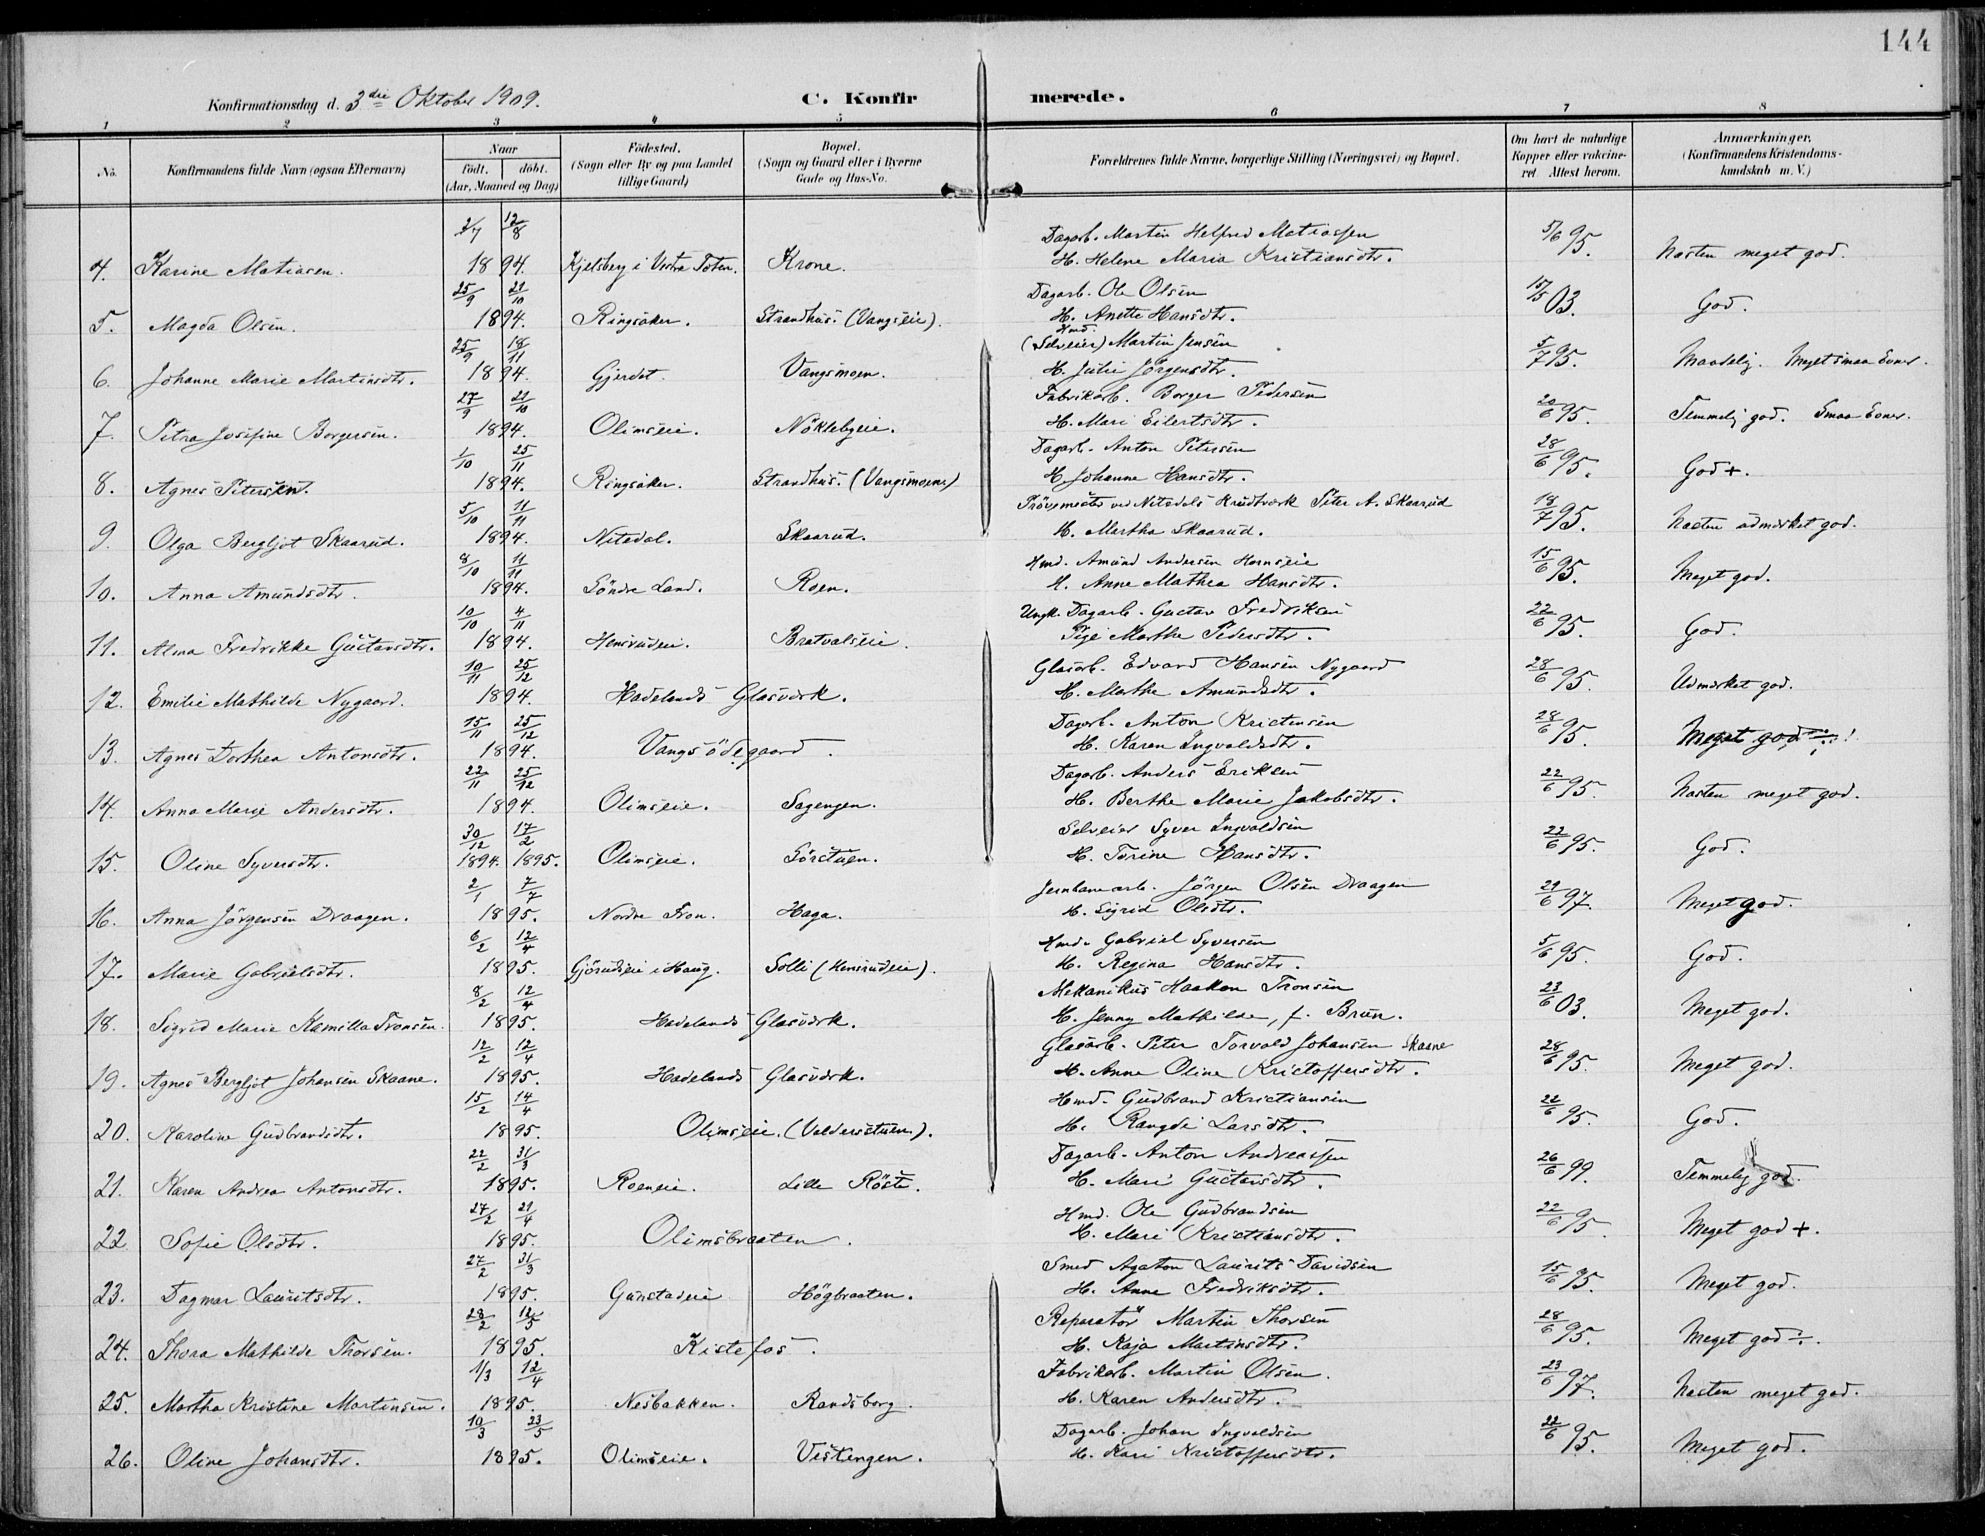 144
Konfirmationsdag d. 3die Oktober 1909. C. Konfirmerede.
1 2 3 4 5 6 7 8
No. Konfirmandens fulde Navn (ogsaa Efternavn) Naar født. døbt. (Aar, Maaned og Dag) Fødested. (Sogn eller By og paa Landet tillige Gaard) Bopæl. (Sogn og Gaard eller i Byerne Gade og Hus-No. Forældrenes fulde Navne, borgerlige Stilling (Næringsvei) og Bopæl. Om havt de naturlige Kopper eller vakcineret. Attest herom. Anmærkninger. (Konfirmandens Kristendomskundskab m. V.)
2/7 12/8 Dagarb. Martin Helfred Matiassen 5/6 95.
4. Karine Matiasen. 1894. Kjelsberg i Vestre Toten. Krone. H. Helene Maria Kristiansdtr. Næsten meget god.
25/9 21/10 Dagarb. Ole Olsen 15/5 03.
5. Magda Olsen. 1894. Ringsaker. Strandhus. (Vangseie). H. Anette Hansdtr. God.
25/9 18/11 Hmd. (Selveier) Martin Jensen 5/7 95.
6. Johanne Marie Martinsdtr. 1894. Gjerdet. Vangsmoen. H. Julie Jørgensdtr. Maadelig. Meget smaa Evner.
27/9 21/10 Fabrikarb. Borger Pedersen 20/6 95.
7. Petra Josefine Borgersen. 1894. Olimseie. Nöklebyeie. H. Mari Eilertsdtr. Temmelig god. Smaa Evner.
1/10 25/11 Dagarb. Anton Petersen 28/6 95.
8. Agnes Petersen. 1894. Ringsaker. Strandhus. (Vangsmoene) H. Johanne Hansdtr. God +.
5/10 11/11 Prövemester ved Nitedals Krudtværk Peter A. Skaarud 18/7 95.
9. Olga Bergljot Skaarud. 1894. Nitedal. Skaarud. H. Martha Skaarud. Næsten udmærket god.
8/10 11/11 Hmd. Amund Andersen Hornseie 15/6 95.
10. Anna Amundsdtr. 1894. Söndre Land. Roen. H. Anne Mathea Hansdtr. Meget god.
10/10 4/11 Ungk. Dagarb. Gustav Fredriksen 22/6 95.
11. Alma Fredrikke Gustavsdtr. 1894. Hensrudeie. Bratvalseie. Pige Marthe Pedersdtr. God.
10/11 25/12 Glasarb. Edvard Hansen Nygaard 28/6 95.
12. Emilie Mathilde Nygaard. 1894. Hadelands Glasværk. H. Mathe Amundsdtr. Udmærket god.
15/11 25/12 Dagarb. Anton Kristensen 28/6 95.
13. Agnes Dorthea Antonsdtr. 1894. Vangsödegaard. H. Karen Ingvaldsdtr. Meget god ÷!
22/11 25/12 Dagarb. Anders Eriksen 22/6 95.
14. Anna Marie Andersdtr. 1894. Olimseie. Sagengen. H. Berthe Marie Jakobsdtr. Næsten meget god.
30/12 17/2 Selveier Syver Ingvaldsen 22/6 95.
15. Oline Syversdtr. 1894. 1895. Olimseie. Sörstuen. H. Torine Hansdtr. God.
2/1 7/7 Jernbanearb. Jörgen Olsen Draagen 29/6 97.
16. Anna Jörgensen Draagen. 1895. Nordre Fron. Haga. H. Sigrid Olsdtr. Meget god.
6/2 12/4 Hmd. Gabriel Syversen 5/6 95.
17. Marie Gabrielsdtr. 1895. Gjörudseie i Haug. Solli (Hensrudeie). H. Regina Hansdtr. God.
8/2 12/4 Mekanikus Haakon Tronsen 23/6 03.
18. Sigrid Marie Kamilla Tronsen. 1895. Hadelands Glasværk. H. Jenny Mathilde, f. Brun. Meget god.
12/2 12/4 Glasarb. Peter Torvald Johansen Skaane 28/6 95.
19. Agnes Bergljot Johansen Skaane. 1895. Hadelands Glasværk. H. Anne Oline Kristoffersdtr. Meget god.
15/2 14/4 Hmd. Gudbrand Kristiansen 22/6 95.
20. Karoline Gudbrandsdtr. 1895. Olimseie. (Valdersstuen). H. Rangdi Larsdtr. God.
22/2 31/3 Dagarb. Anton Andreassen 26/6 99.
21. Karen Andrea Antonsdtr. 1895. Roeneie. Lille Röste. H. Mari Gustavsdtr. Temmelig god.
27/2 21/4 Hmd. Ole Gudbrandsen 22/6 95.
22. Sofie Olsdtr. 1895. Olimsbraaten. H. Mari Kristiansdtr. Meget god +.
27/2 31/3 Smed Agaton Laurits Davidsen 15/6 95.
23. Dagmar Lauritsdtr. 1895. Gunstadeie Högbraaten. H. Anne Fredriksdtr. Meget god.
28/2 12/5 Reparatör Martin Thorsen 28/6 95.
24. Thora Mathilde Thorsen. 1895. Kistefos. H. Kaja Martinsdtr. Meget god ÷.
1/3 12/4 Fabrikarb. Martin Olsen. 23/6 97.
25. Martha Kristine Martinsen. 1895. Nesbakken. Randsborg. H. Karen Andersdtr. Næsten meget god.
10/3 23/5 Dagarb. Johan Ingvaldsen 22/6 95.
26. Oline Johansdtr. 1895. Olimseie. Vestengen. H. Kari Kristoffersdtr. Meget god.